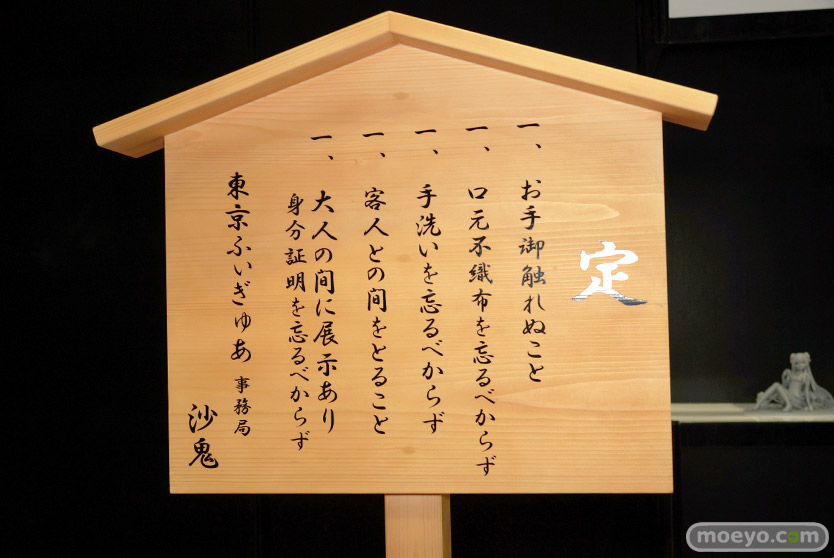 定
一、お手御触れぬこと
一、口元不織布を忘るべからず
一、手洗いを忘るべからず
一、客人との間をとること
一、大人の間に展示あり
身分証明を忘るべからず
東京ふぃぎゅあ 事務局
沙鬼
moeyo.com